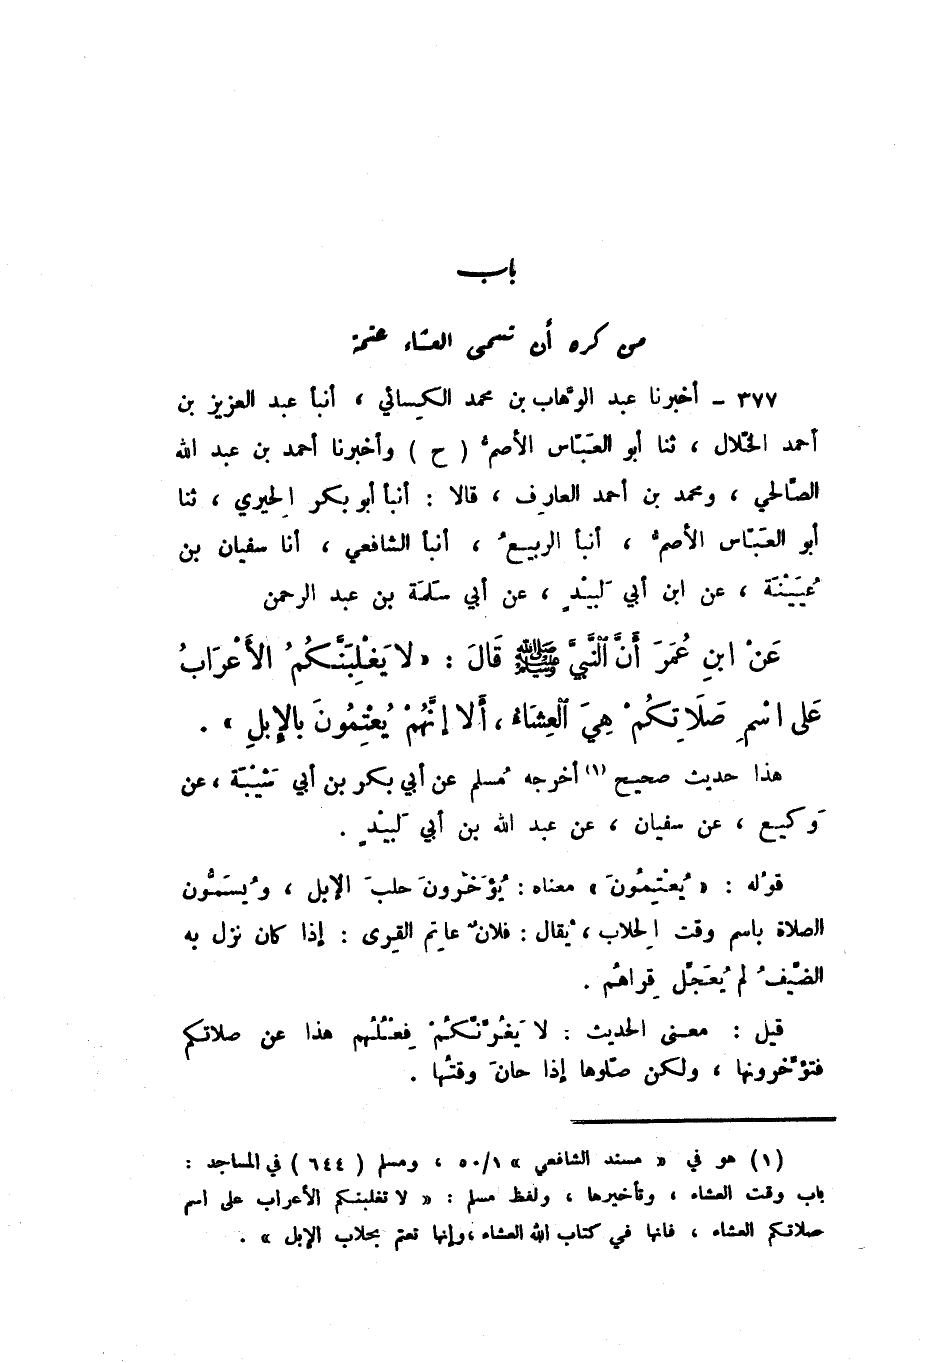 باب
من كره أن تسمى العشاء عتمة
٣٧٧ - أخبرنا عبد الوهّاب بن محمد الكِسائي ، أنبأ عبد العزيز بن
أحمد الخلّال ، ثنا أبو العَبّاس الأصمُّ ( ح ) وأخبرنا أحمد بن عبد الله
الصّالحي ، ومحمد بن أحمد العارِف ، قالا : أنبأ أبو بكر الحِيري ، ثنا
أبو العَبّاس الأصمُّ ، أنبأ الربيعُ ، أنبأ الشافعي ، أنا سفيان بن
عُيَيْنَة ، عن ابن أبي لَبيْدٍ ، عن أبي سَلَمَة بن عبد الرحمن
عَنْ ابنِ عُمَرَ أَنَّ النَّبيَّ ﷺ قَالَ : « لا يَغْلِبَنَّكُمُ الأَعْرَابُ
عَلى اسْمِ صَلَاتِكُمْ هِيَ العِشَاءُ ، أَلا إنَّهُمْ يُعْتِمُونَ بالإبلِ » .
هذا حديث صحيح (١) أخرجه مُسلم عن أبي بكر بن أبي شَيْبَة ، عن
وَكيع ، عن سفيان ، عن عبد الله بن أبي لَبيْدٍ .
قولُه : « يُعْتِمُونَ » معناه : يُؤَخّرونَ حلبَ الإبل ، ويُسَمُّون
الصلاة باسم وقت الحِلاب ، يُقال : فلانٌ عاتِم القِرى : إذا كان نزل به
الضّيفُ لم يُعَجِّل قِراهُم .
قيل : معنى الحديث : لا يَغُرَّنّكُمْ فِعْلُهُم هذا عن صلاتكم
فتؤخّرونها ، ولكن صلّوها إذا حانَ وقتُها .
(١) هو في « مسند الشافعي » ٥٠/١ ، ومسلم ( ٦٤٤ ) في المساجد :
باب وقت العشاء ، وتأخيرها ، ولفظ مسلم : « لا تغلبنكم الأعراب على اسم
صلاتكم العشاء ، فانها في كتاب الله العشاء ، وإنها تعتم بحلاب الإبل » .